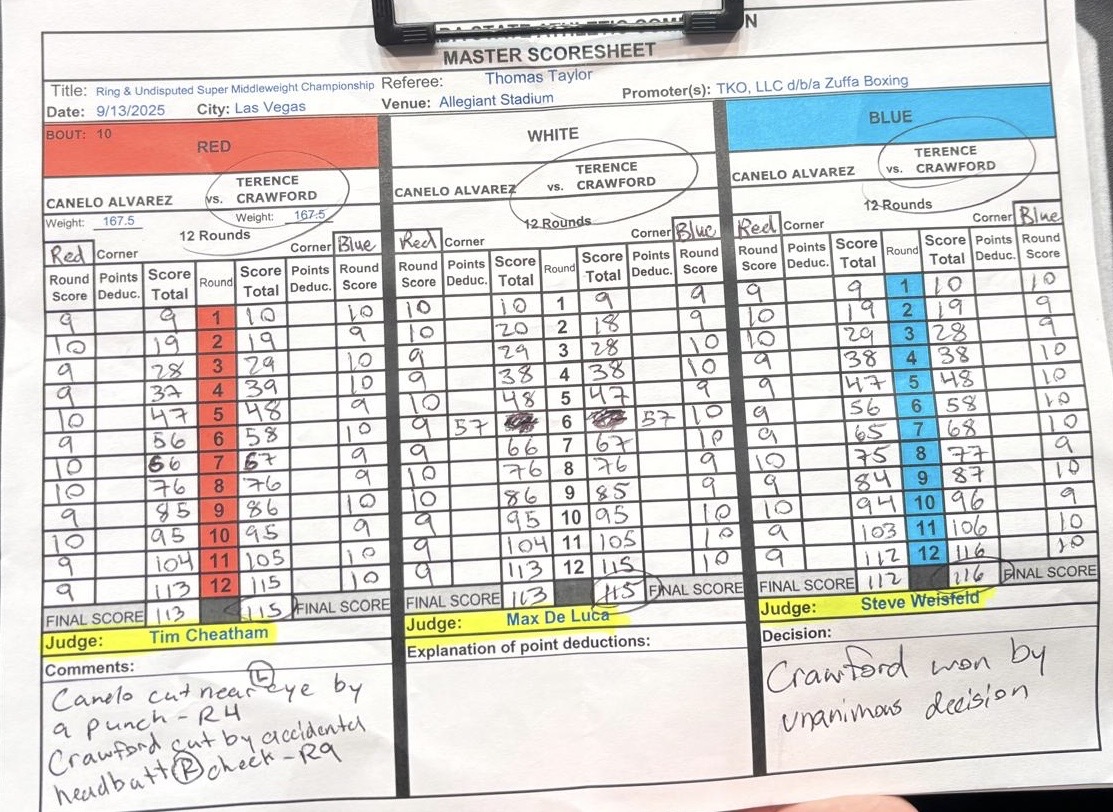 STATE ATHLETIC
MASTER SCORESHEET
Title: Ring & Undisputed Super Middleweight Championship Referee: Thomas Taylor Promoter(s): TKO, LLC d/b/a Zuffa Boxing
Date: 9/13/2025 City: Las Vegas Venue: Allegiant Stadium
BOUT: 10
RED
CANELO ALVAREZ vs. TERENCE CRAWFORD
Weight: 167.5 Weight: 167.5
12 Rounds
Red Corner Corner Blue
Round Score Points Deduc. Score Total Round Score Total Points Deduc. Round Score
9 9 1 10 10
10 19 2 19 9
9 28 3 29 10
9 37 4 39 10
10 47 5 48 9
9 56 6 58 10
10 66 7 67 9
10 76 8 76 9
9 85 9 86 10
10 95 10 95 9
9 104 11 105 10
9 113 12 115 10
FINAL SCORE 113 115 FINAL SCORE
Judge: Tim Cheatham
Comments:
Canelo cut near (L) eye by
a punch - R4
Crawford cut by accidental
headbutt (R) check - R9
WHITE
CANELO ALVAREZ vs. TERENCE CRAWFORD
12 Rounds
Red Corner Corner Blue
Round Score Points Deduc. Score Total Round Score Total Points Deduc. Round Score
10 10 1 9 9
10 20 2 18 9
9 29 3 28 10
9 38 4 38 10
10 48 5 47 9
9 57 6 57 10
9 66 7 67 10
10 76 8 76 9
10 86 9 85 9
9 95 10 95 10
9 104 11 105 10
9 113 12 115 10
FINAL SCORE 113 115 FINAL SCORE
Judge: Max De Luca
Explanation of point deductions:
BLUE
CANELO ALVAREZ vs. TERENCE CRAWFORD
12 Rounds
Red Corner Corner Blue
Round Score Points Deduc. Score Total Round Score Total Points Deduc. Round Score
9 9 1 10 10
10 19 2 19 9
10 29 3 28 9
9 38 4 38 10
9 47 5 48 10
9 56 6 58 10
9 65 7 68 10
10 75 8 77 9
9 84 9 87 10
10 94 10 96 9
9 103 11 106 10
9 112 12 116 10
FINAL SCORE 112 116 FINAL SCORE
Judge: Steve Weisfeld
Decision:
Crawford won by
unanimous decision